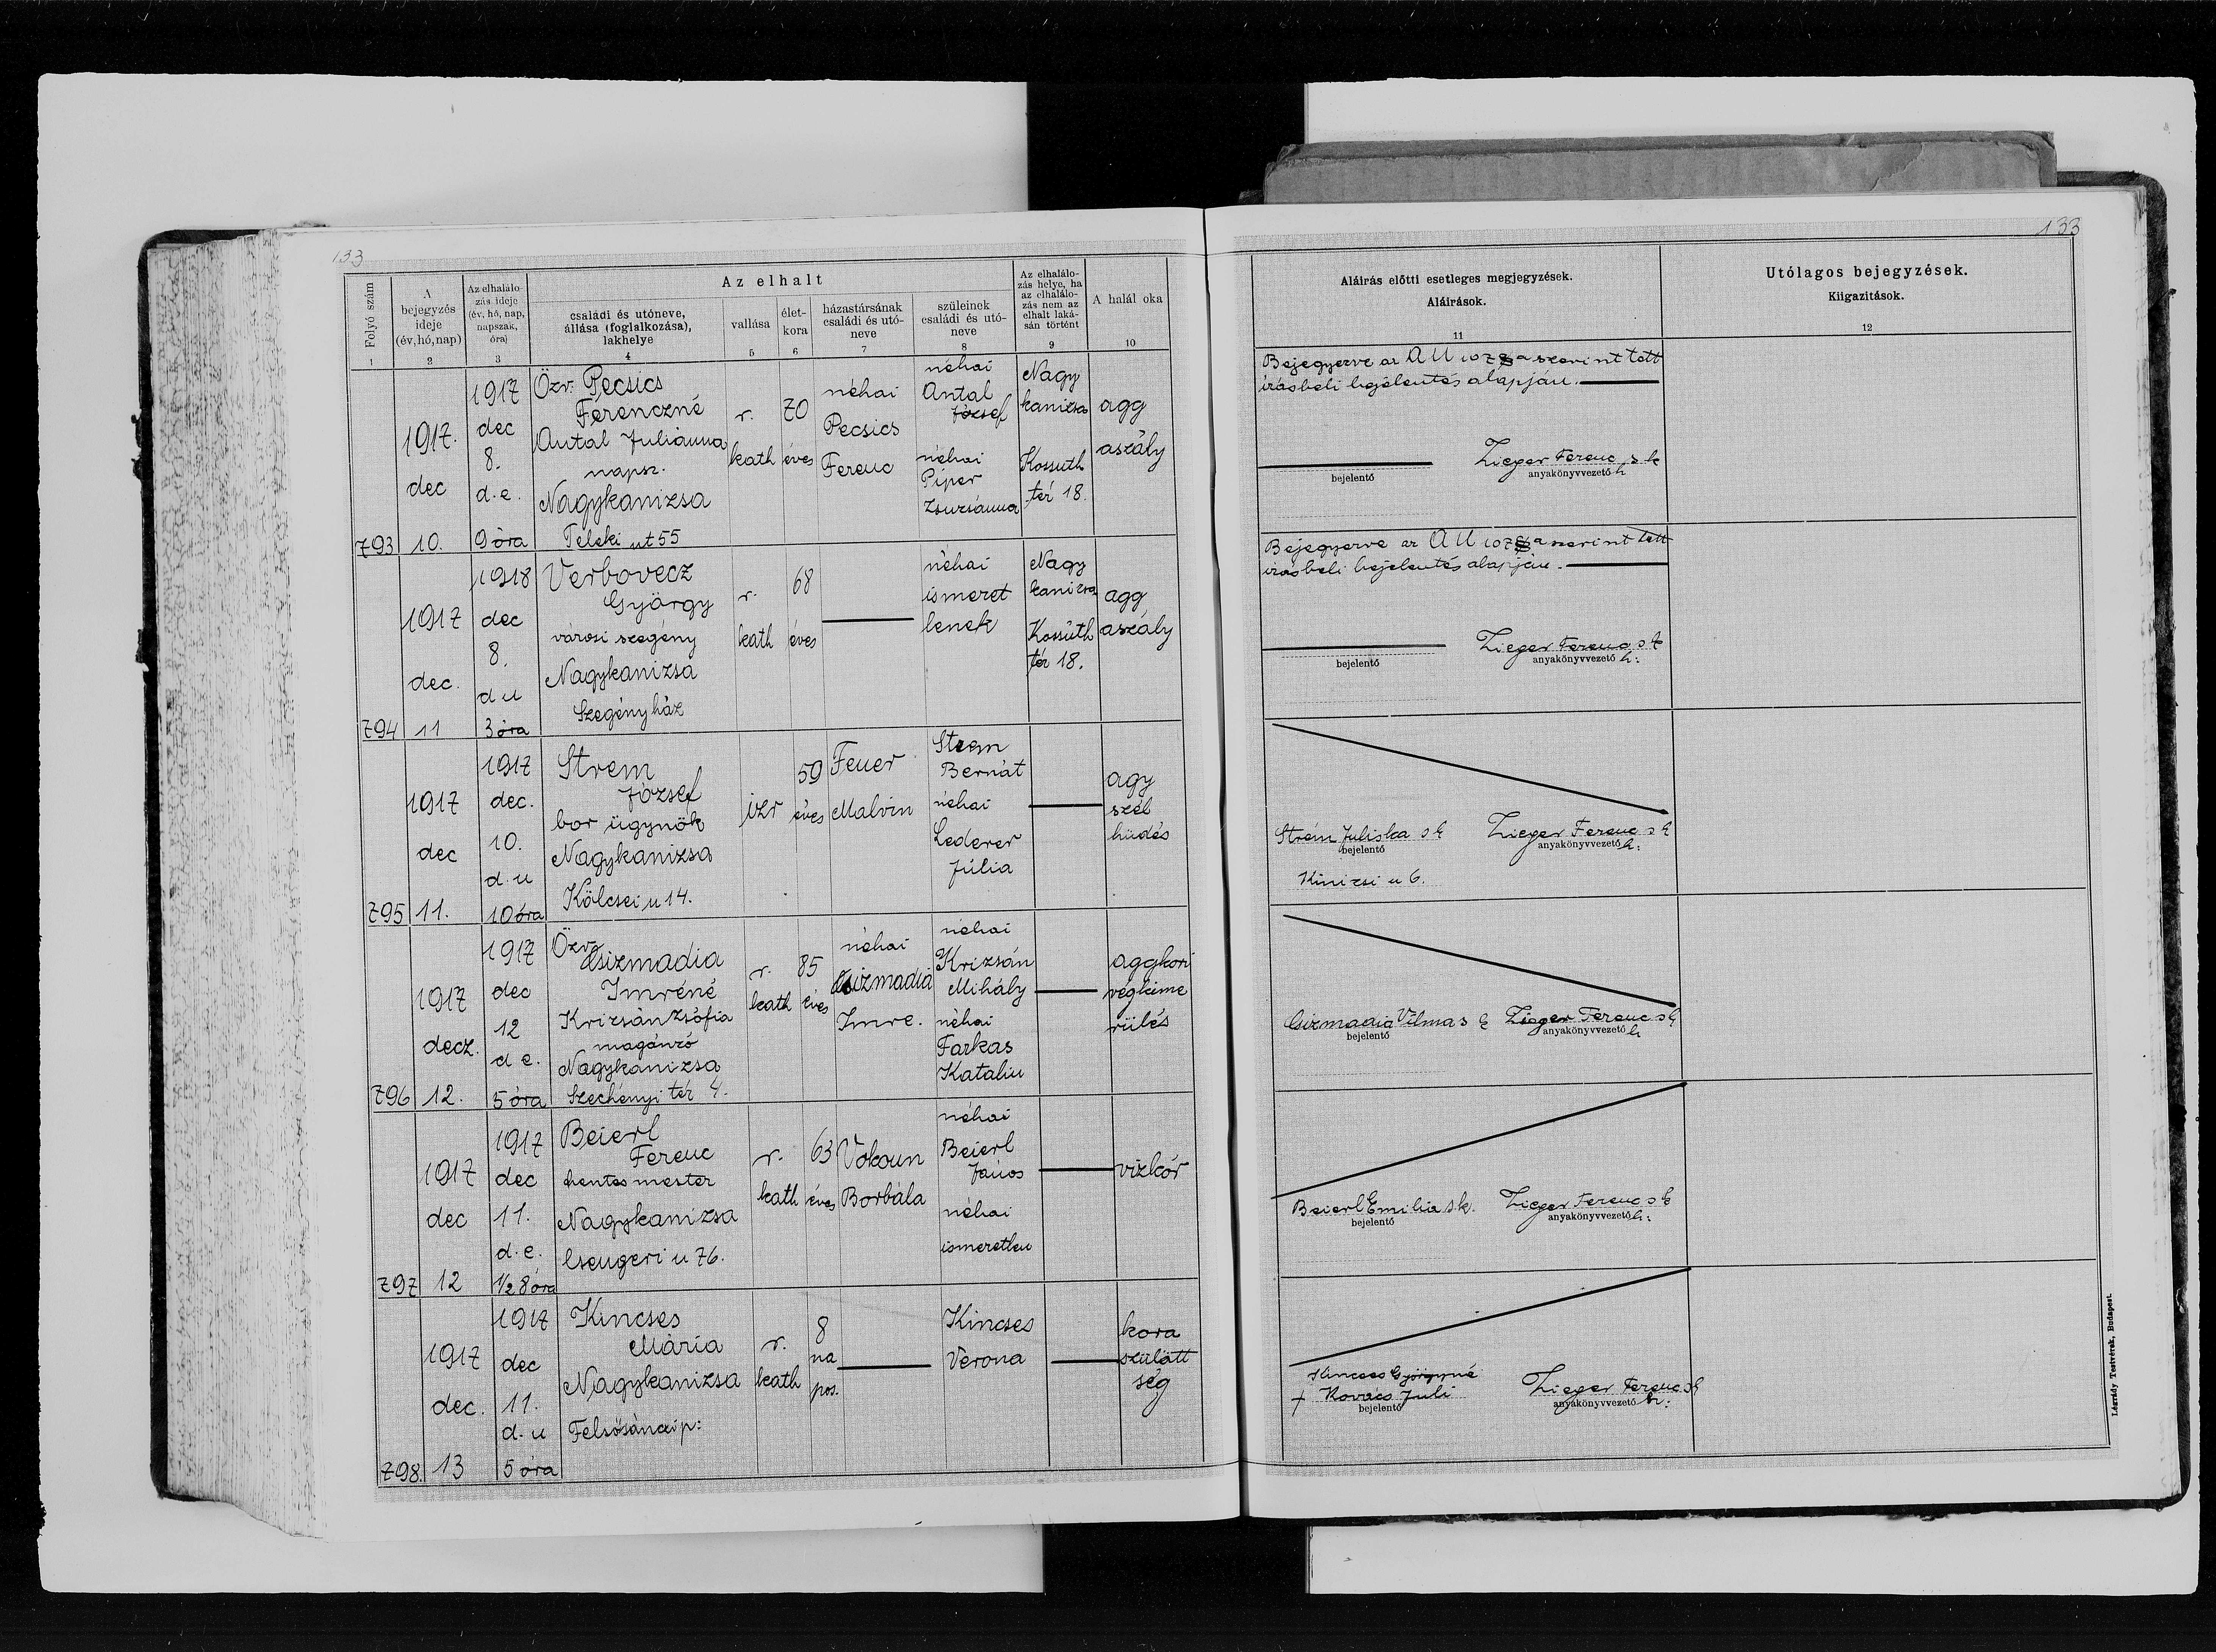 133
Az elhalt
Folyó szám
A bejegyzés ideje (év, hó, nap)
Az elhalálozás ideje (év, hó, nap, napszak, óra)
családi és utóneve, állása (foglalkozása), lakhelye
vallása
életkora
házastársának családi és utóneve
szüleinek családi és utóneve
Az elhalálozás helye, ha az elhalálozás nem az elhalt lakásán történt
A halál oka
1 2 3 4 5 6 7 8 9 10
793
1917. dec 10.
1917 dec 8. d.e. 9 óra
Özv. Pecsics
Ferenczné
Antal Juliánna
napsz.
Nagykanizsa
Teleki ut 55
r. kath
70 éves
néhai Pecsics Ferenc
néhai Antal József
néhai Piper Zsuzsánna
Nagy kanizsa Kossuth tér 18.
agg aszály
794
1917 dec. 11
1918 dec 8. d u 3 óra
Verbovecz
György
városi szegény
Nagykanizsa
Szegényház
r. kath
68 éves
néhai ismeret lenek
Nagy kanizsa Kossuth tér 18.
agg aszály
795
1917 dec 11.
1917 dec. 10. d.u 10 óra
Strem
József
bor ügynök
Nagykanizsa
Kölcsei u 14.
izr
59 éves
Feuer Malvin
Strem Bernát
néhai Lederer Júlia
agy szél hüdés
796
1917 decz. 12.
1917 dec 12 d e. 5 óra
Özv.
Csizmadia
Imréné
Krizsán Zsófia
magánzó
Nagykanizsa
Széchényi tér 4.
r. kath
85 éves
néhai Csizmadia Imre.
néhai Krizsán Mihály
néhai Farkas Katalin
aggkori végkime rülés
797
1917 dec 12
1917 dec 11. d.e. 1/2 8 óra
Beierl
Ferenc
hentes mester
Nagykanizsa
Csengeri u 76.
r. kath
63 éves
Vokoun Borbála
néhai Beierl János
néhai ismeretlen
vizkór
798.
1917 dec. 13
1917 dec 11. d.u 5 óra
Kincses
Mária
Nagykanizsa
Felsősánci p:
r. kath
8 na pos.
Kincses Verona
kora szülött ség
133
Aláírás előtti esetleges megjegyzések.
Aláírások.
11
Utólagos bejegyzések.
Kiigazítások.
12
Bejegyezve az A U 107 § a szerint tett
írásbeli bejelentés alapján.
Zieger Ferenc s k
bejelentő anyakönyvvezető h
Bejegyezve az A U 107 § a szerint tett
írásbeli bejelentés alapján.
Zieger Ferenc s k
bejelentő anyakönyvvezető h:
Strém Juliska s k Zieger Ferenc s k
bejelentő anyakönyvvezető h:
Kinizsi u 6.
Csizmadia Vilma s k Zieger Ferenc s k
bejelentő anyakönyvvezető h
Beierl Emilia s k. Zieger Ferenc s k
bejelentő anyakönyvvezető h:
Kincses Györgyné
+ Kovács Juli Zieger Ferenc s k
bejelentő anyakönyvvezető h:
Légrády Testvérek, Budapest.